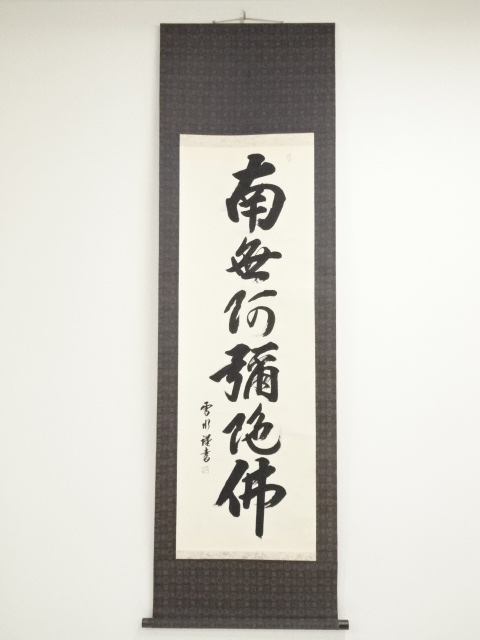 南無阿彌陀佛
雲水謹書